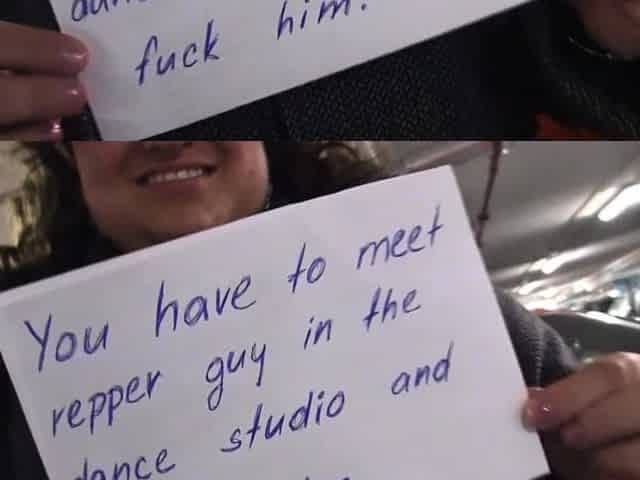 fuck him.
You have to meet
repper guy in the
dance studio and